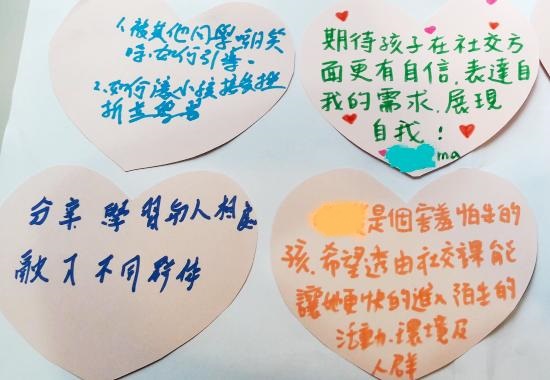 1.被其他同學嘲笑
時,如何引導。
2.如何讓小孩接受挫
折並
期待孩子在社交方
面更有自信,表達自
我的需求,展現
自我!
ma
分享 學習與人相處
融入不同群体
是個害羞怕生的
孩,希望透由社交課能
讓他更快的進入陌生的
活動、環境及
人群